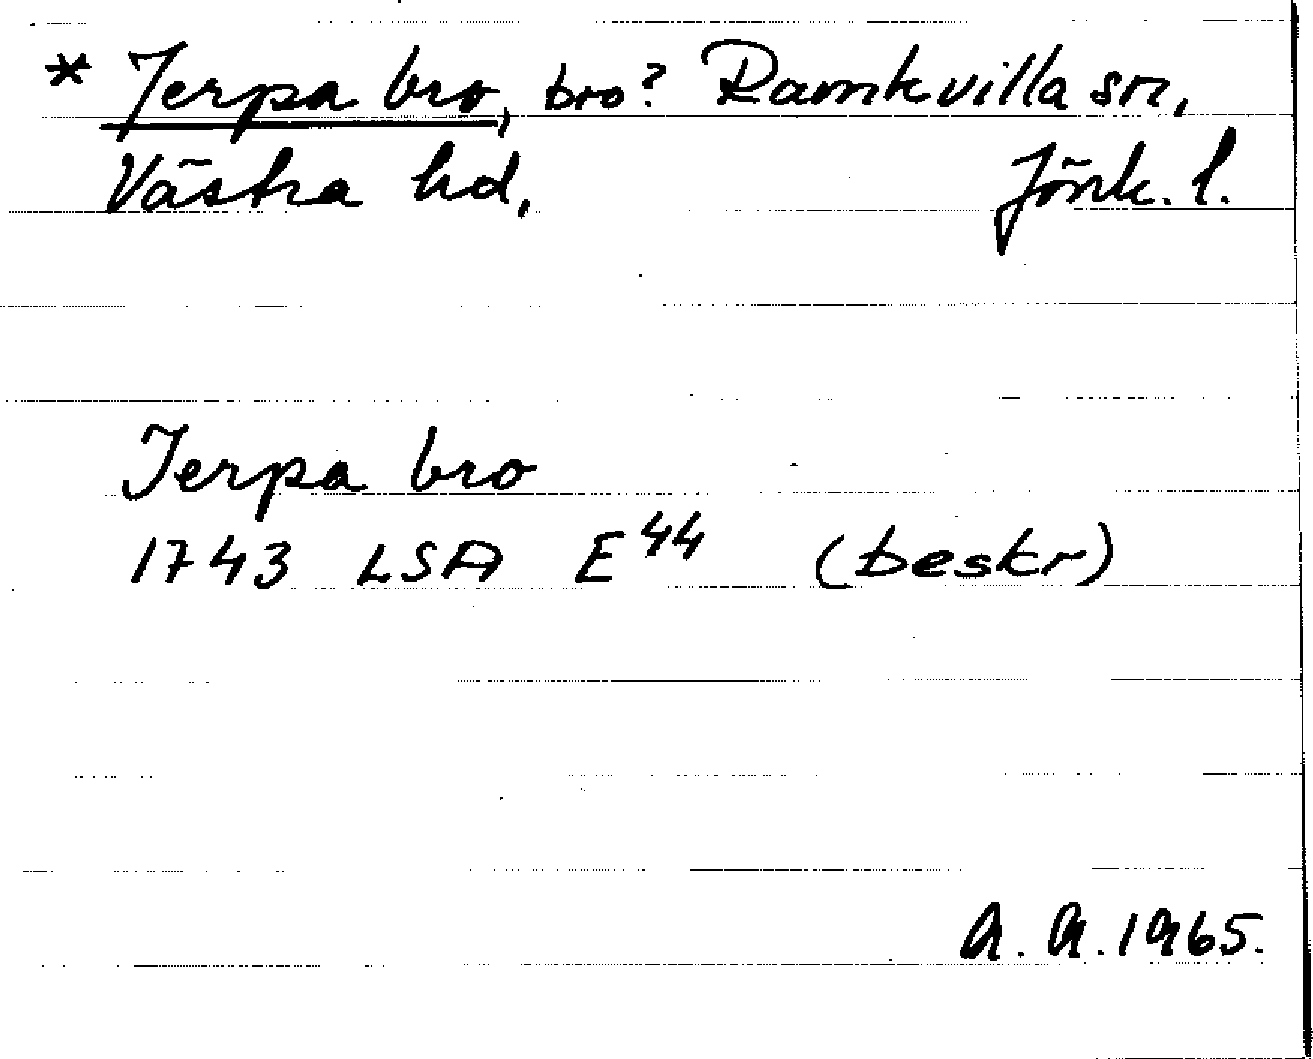 * Jerpa bro, bro? Ramkvilla sn,
Västra hd, Jönk. l.
Jerpa bro
1743 LSA E44 (beskr)
A. A. 1965.